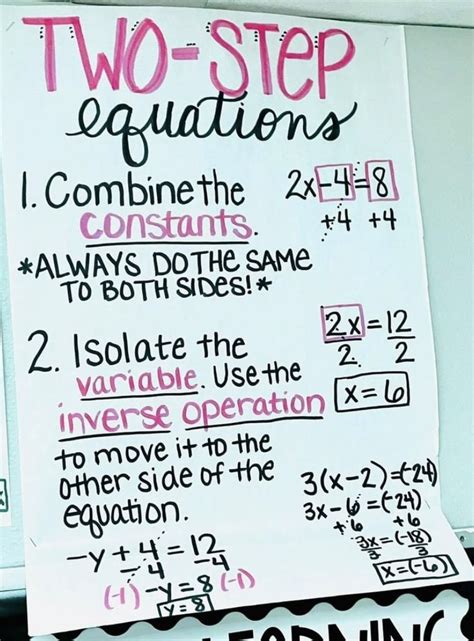 TWO-STEP
equations
1. Combine the
constants.
2x-4=8
+4 +4
*ALWAYS DO THE SAME
TO BOTH SIDES!*
2. Isolate the
variable. Use the
inverse operation
to move it to the
other side of the
equation.
2x=12
2 2
x=6
-y+4=12
-4 -4
(-1) -y=8 (-1)
y=8
3(x-2)=(-24)
3x-6=(-24)
+6 +6
3x=(-18)
3 3
x=(-6)